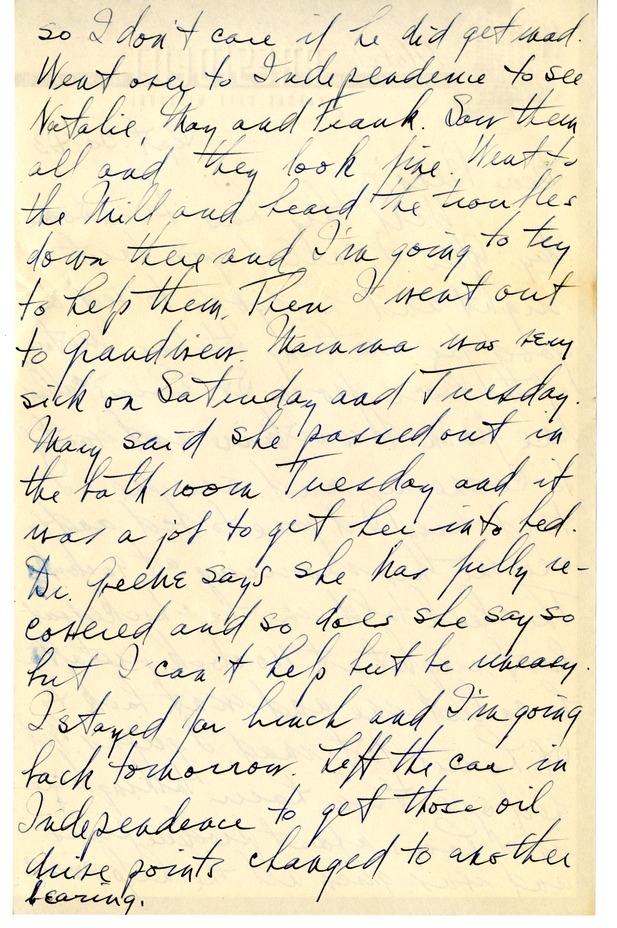 so I don't care if he did get mad.
Went over to Independence to see
Natalie, May and Frank. Saw them
all and they look fine. Went to
the Mill and heard the troubles
down there and I'm going to try
to help them. Then I went out
to Grandview. Mamma was very
sick on Saturday and Tuesday.
Mary said she passed out in
the bath room Tuesday and it
was a job to get her into bed.
Dr. Greene says she has fully re-
covered and so does she say so
but I can't help but be uneasy.
I stayed for lunch and I'm going
back tomorrow. Left the car in
Independence to get those oil
drive points changed to another
bearing.